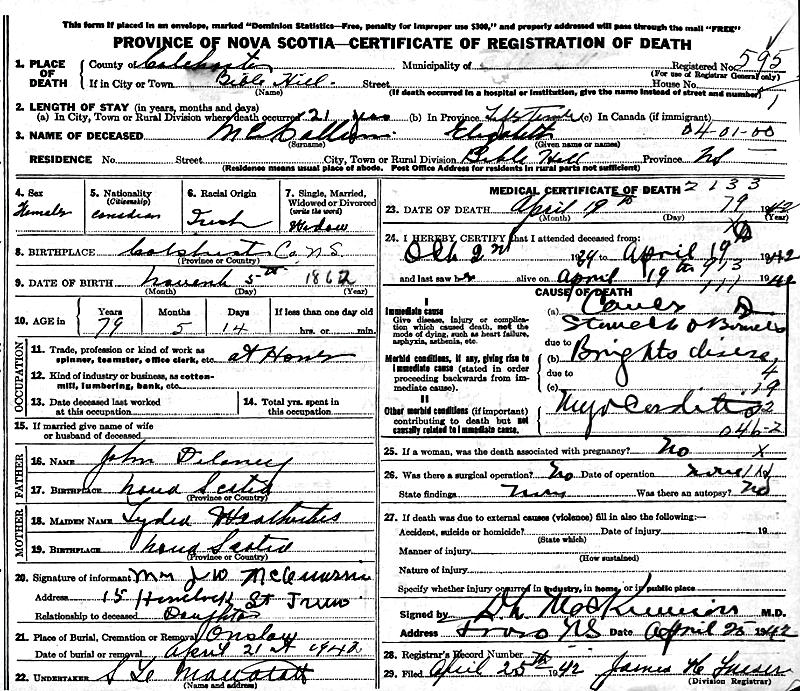 This form if placed in an envelope, marked "Dominion Statistics—Free, penalty for improper use $300," and properly addressed will pass through the mail "FREE"
PROVINCE OF NOVA SCOTIA—CERTIFICATE OF REGISTRATION OF DEATH
1. PLACE OF DEATH County of Colchester Municipality of Registered No. 595
(For use of Registrar General only)
If in City or Town Bible Hill Street House No.
(Name) (If death occurred in a hospital or institution, give the name instead of street and number)
2. LENGTH OF STAY (in years, months and days)
(a) In City, Town or Rural Division where death occurred 21 yrs (b) In Province Life Time (c) In Canada (if immigrant)
3. NAME OF DECEASED McCallum Elizabeth 04-01-00
(Surname) (Given name or names)
RESIDENCE No. Street City, Town or Rural Division Bible Hill Province NS
(Residence means usual place of abode. Post Office Address for residents in rural parts not sufficient)
4. Sex Female
5. Nationality (Citizenship) Canadian
6. Racial Origin Irish
7. Single, Married, Widowed or Divorced (write the word) Widow
8. BIRTHPLACE Colchester Co. N.S.
(Province or Country)
9. DATE OF BIRTH 5th 1862
(Month) (Day) (Year)
10. AGE in Years 79 Months 5 Days 14 If less than one day old hrs. or min.
OCCUPATION
11. Trade, profession or kind of work as spinner, teamster, office clerk, etc. at Home
12. Kind of industry or business, as cotton-mill, lumbering, bank, etc.
13. Date deceased last worked at this occupation
14. Total yrs. spent in this occupation
15. If married give name of wife or husband of deceased
FATHER
16. NAME John Delaney
17. BIRTHPLACE Nova Scotia
(Province or Country)
MOTHER
18. MAIDEN NAME Lydia
19. BIRTHPLACE Nova Scotia
(Province or Country)
20. Signature of informant Mrs J W
Address 15 St Truro
Relationship to deceased Daughter
21. Place of Burial, Cremation or Removal Onslow
Date of burial or removal April 21st 1942
22. UNDERTAKER
(Name and address)
MEDICAL CERTIFICATE OF DEATH 2133
23. DATE OF DEATH April 19th 79 1942
(Month) (Day) (Year)
24. I HEREBY CERTIFY that I attended deceased from:
2nd 1939 to April 19th 1942
and last saw h alive on April 19th 1942
913
111
CAUSE OF DEATH
I
Immediate cause
Give disease, injury or complication which caused death, not the mode of dying, such as heart failure, asphyxia, asthenia, etc.
(a) Cancer
Stomach & Bowels
due to
Morbid conditions, if any, giving rise to immediate cause (stated in order proceeding backwards from immediate cause).
(b) Brights disease
due to 4
(c) 19
II
Other morbid conditions (important) contributing to death but not causally related to immediate cause.
Myocarditis
046-2
25. If a woman, was the death associated with pregnancy? No X
26. Was there a surgical operation? No Date of operation
State findings Was there an autopsy? No
27. If death was due to external causes (violence) fill in also the following:—
Accident, suicide or homicide? Date of injury 19
(State which)
Manner of injury
(How sustained)
Nature of injury
Specify whether injury occurred in industry, in home, or in public place
Signed by M.D.
Address Truro NS Date April 25 1942
28. Registrar's Record Number
29. Filed April 25th 1942 James
(Division Registrar)